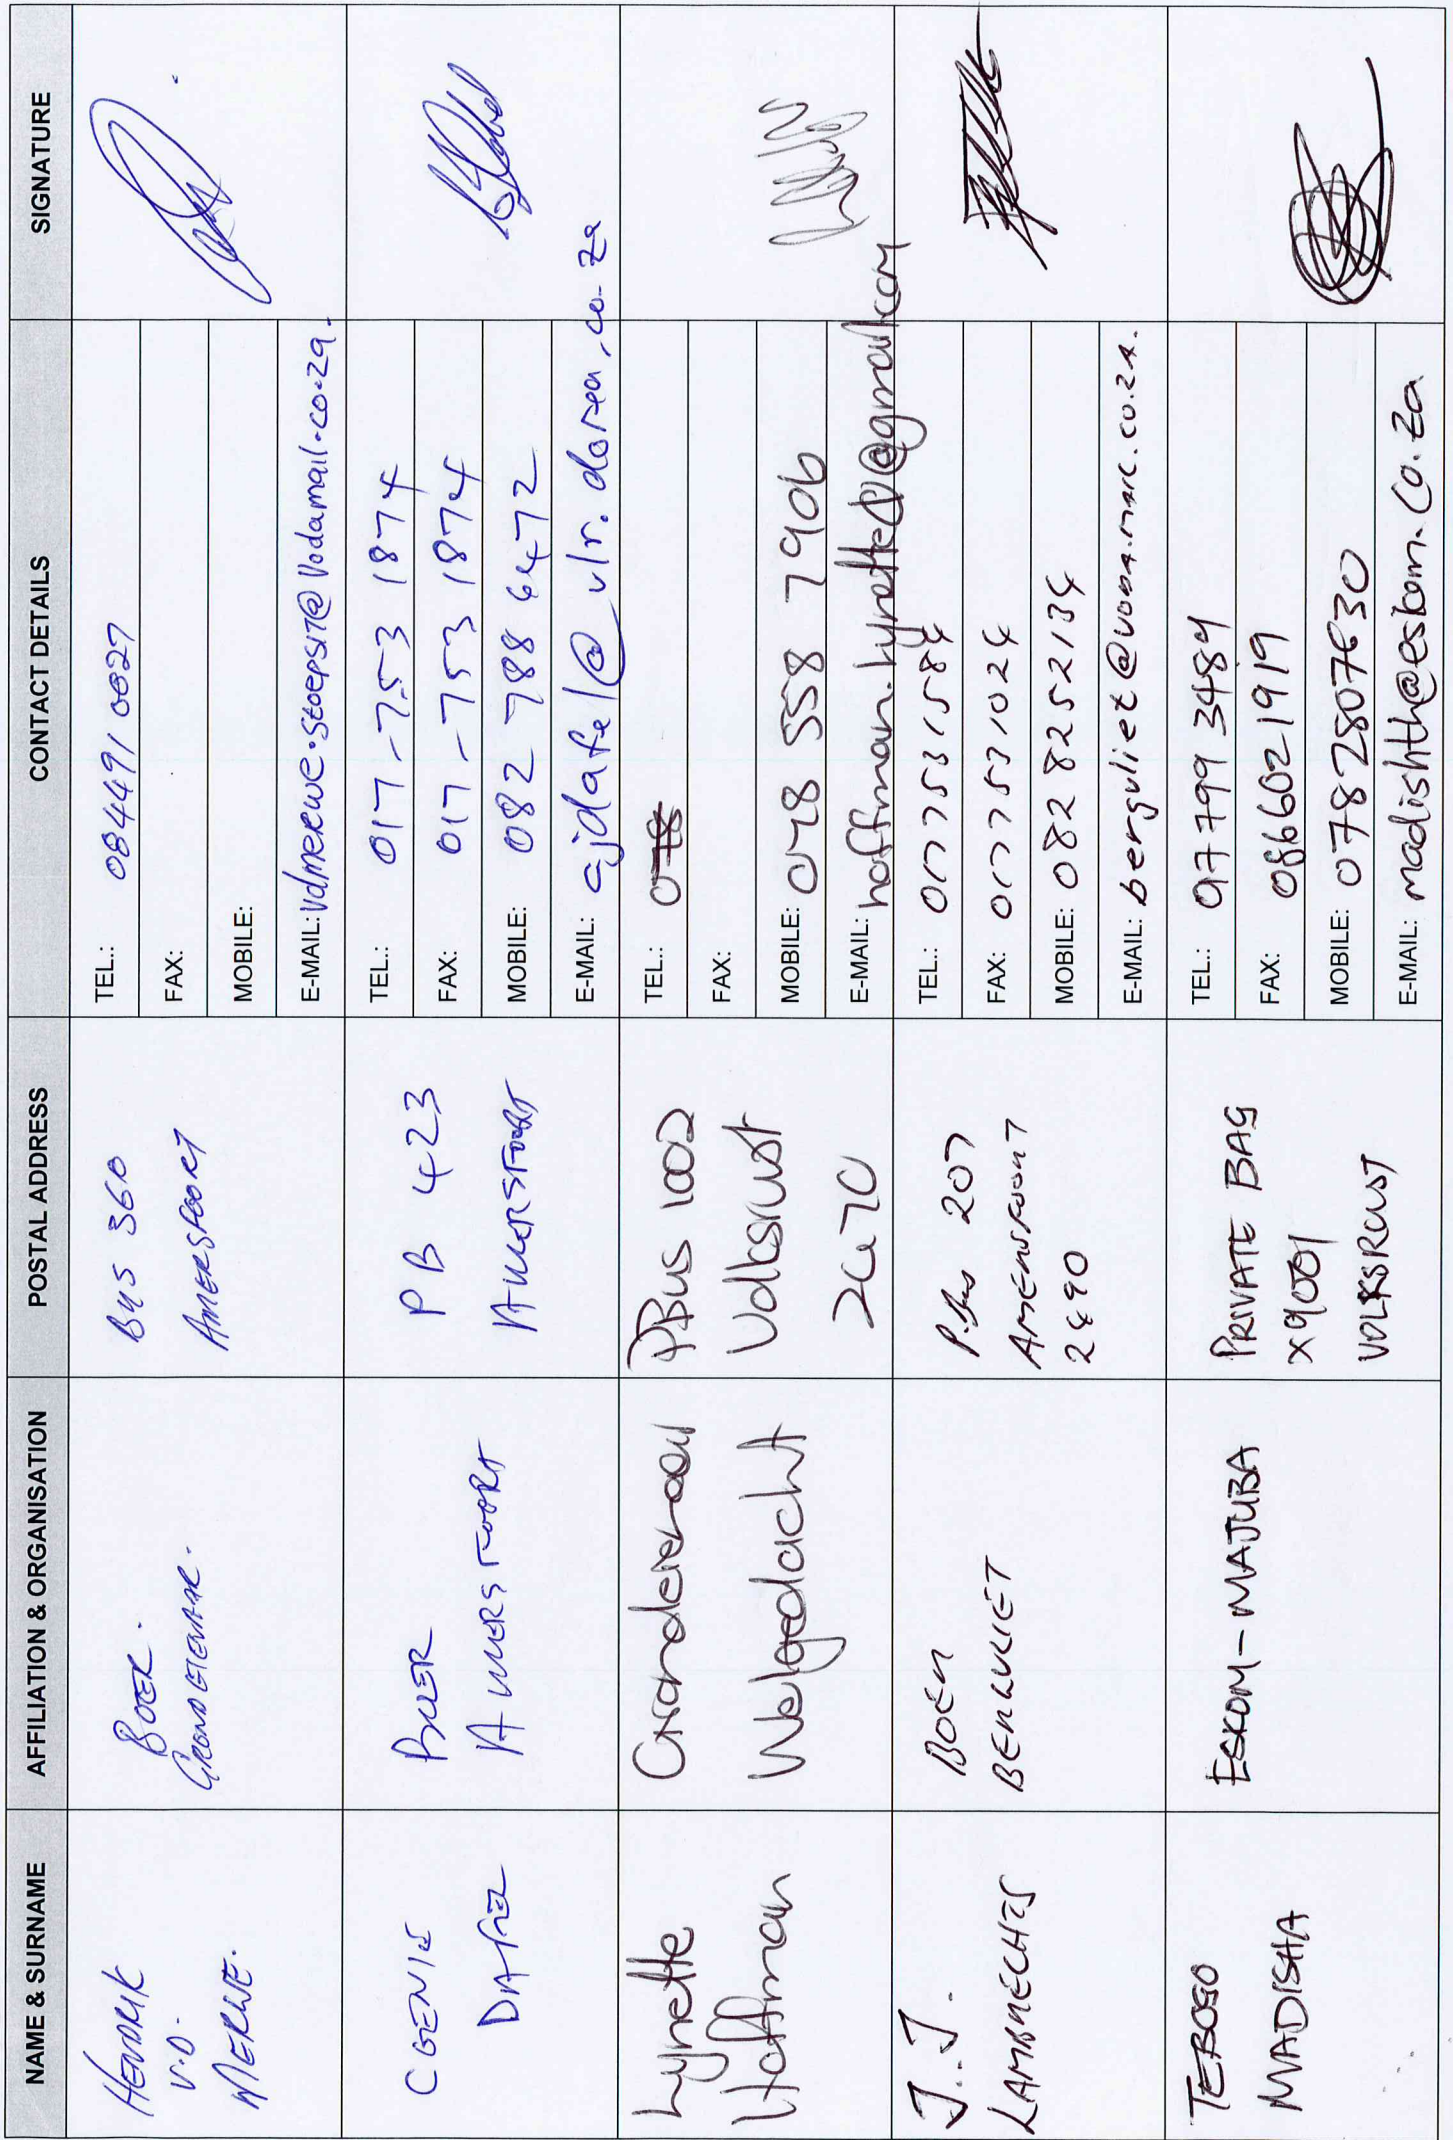 NAME & SURNAME
AFFILIATION & ORGANISATION
POSTAL ADDRESS
CONTACT DETAILS
SIGNATURE
HENDRIK
V.D.
MERWE.
BOER.
GRONDEIENAAR.
BUS 360
AMERSFOORT
TEL.: 084491 0027
FAX:
MOBILE:
E-MAIL: vdmerwe.stoepsit@vodamail.co.za.
DAFEL
BOER
AMERSFOORT
PB 423
AMERSFOORT
TEL.: 017-753 1874
FAX: 017-753 1874
MOBILE: 082 788 6472
E-MAIL: cjdafel@vlr.dorea.co.za
Lynette
Hoffman
Grondeienaar
Welgedacht
PBus 1002
Volksrust
2470
TEL.:
FAX:
MOBILE: 078 558 7906
E-MAIL:
J.J.
LAMBRECHTS
BOER
BERGVLIET
P.Bus 207
AMERSFOORT
2490
TEL.: 017 753 1584
FAX: 017 753 1024
MOBILE: 082 825 2134
E-MAIL: bergvliet@
TEBOGO
MADISHA
ESKOM-MAJUBA
PRIVATE BAG
X9001
VOLKSRUST
TEL.: 017 799 3484
FAX: 086602 1919
MOBILE: 0782807630
E-MAIL: madishth@eskom.co.za